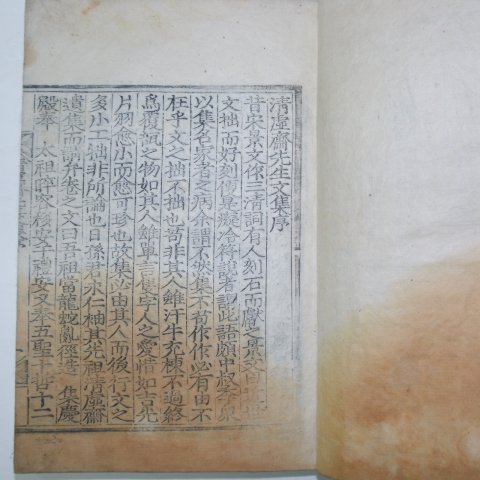 清虛齋先生文集序
昔宋景文作三清詞有人刻石而獻之景文曰
文拙而好刻傳是癡冷符說者謂此語頗中叔季
以集名家者之病余謂不然集不苟作作必有由不
在乎文之拙不拙也苟非其人雖汗牛充棟不過終
爲覆瓿之物如其人雖單言隻字人之愛惜如吉光
片羽愈小而愈可珍也故集必由其人而後行文之
多小工拙非所論也日孫君永仁袖其先祖清虛齋
遺集而謂弁卷之文曰吾祖當龍蛇亂徑造 集慶
殿奉 太祖晬容後安于禮安又奉五聖十哲十二